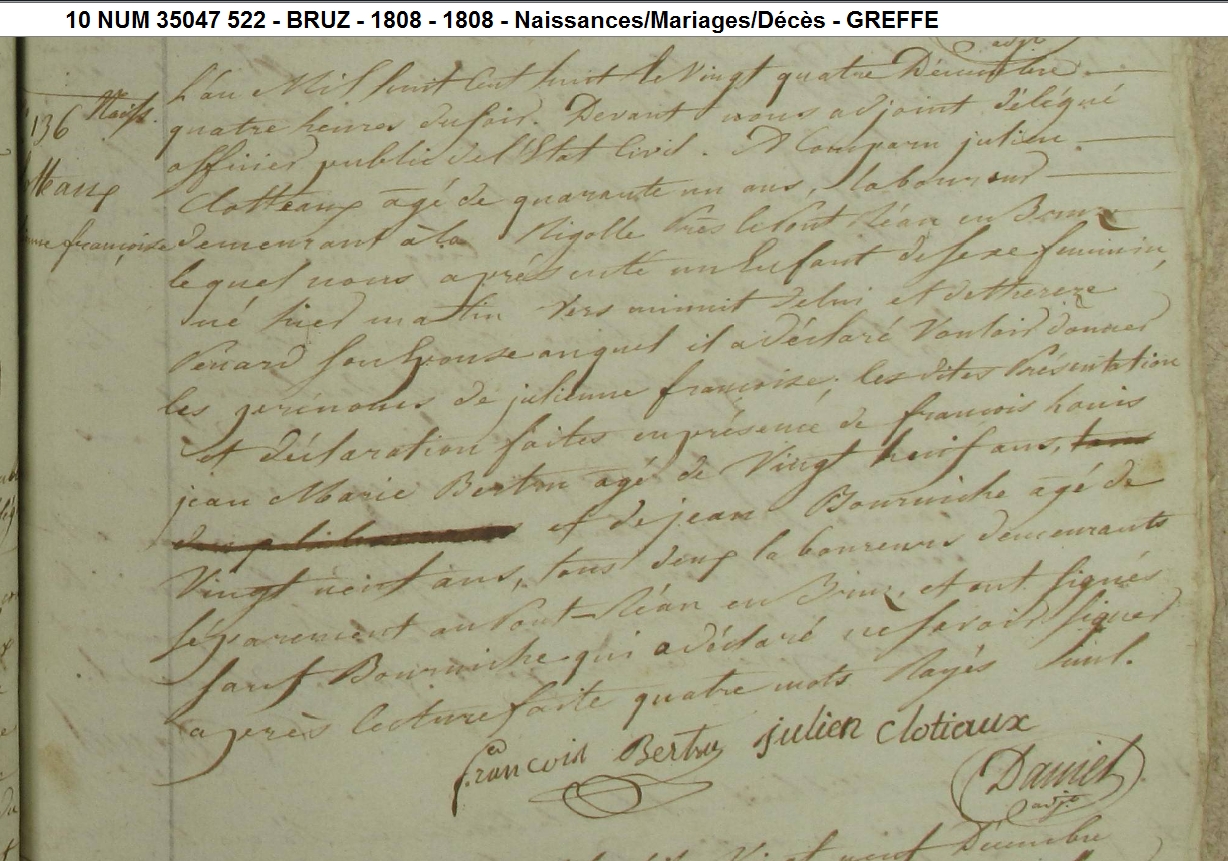 10 NUM 35047 522 - BRUZ - 1808 - 1808 - Naissances/Mariages/Décès - GREFFE
adjt
L'an Mil huit Cent huit le Vingt quatre Décembre
136 Naiss.
quatre heures du soir. Devant nous adjoint délégué
officier public de l'Etat Civil. A Comparu julien
Clotteaux agé de quarante un ans, laboureur
françoise
demeurant à la Rigolle Près le Pont Réan en Bruz
lequel nous a présenté un Enfant de sexe feminin,
né hier matin vers minuit de lui et de therese
Renard son Epouse auquel il a déclaré Vouloir donner
les prénoms de julienne françoise. les dites Présentation
et déclaration faites en présence de francois Louis
jean Marie Bertru agé de Vingt neuf ans, tous
et de jean Bourniche agé de
Vingt neuf ans, tous deux laboureurs demeurants
séparement au Pont-Réan en Bruz, et ont signés
sauf Bourniche qui a déclaré ne savoir signer
après lecture faite quatre mots Rayés nuls.
francois Bertru julien clotiaux
Daniel
adjt
Décembre